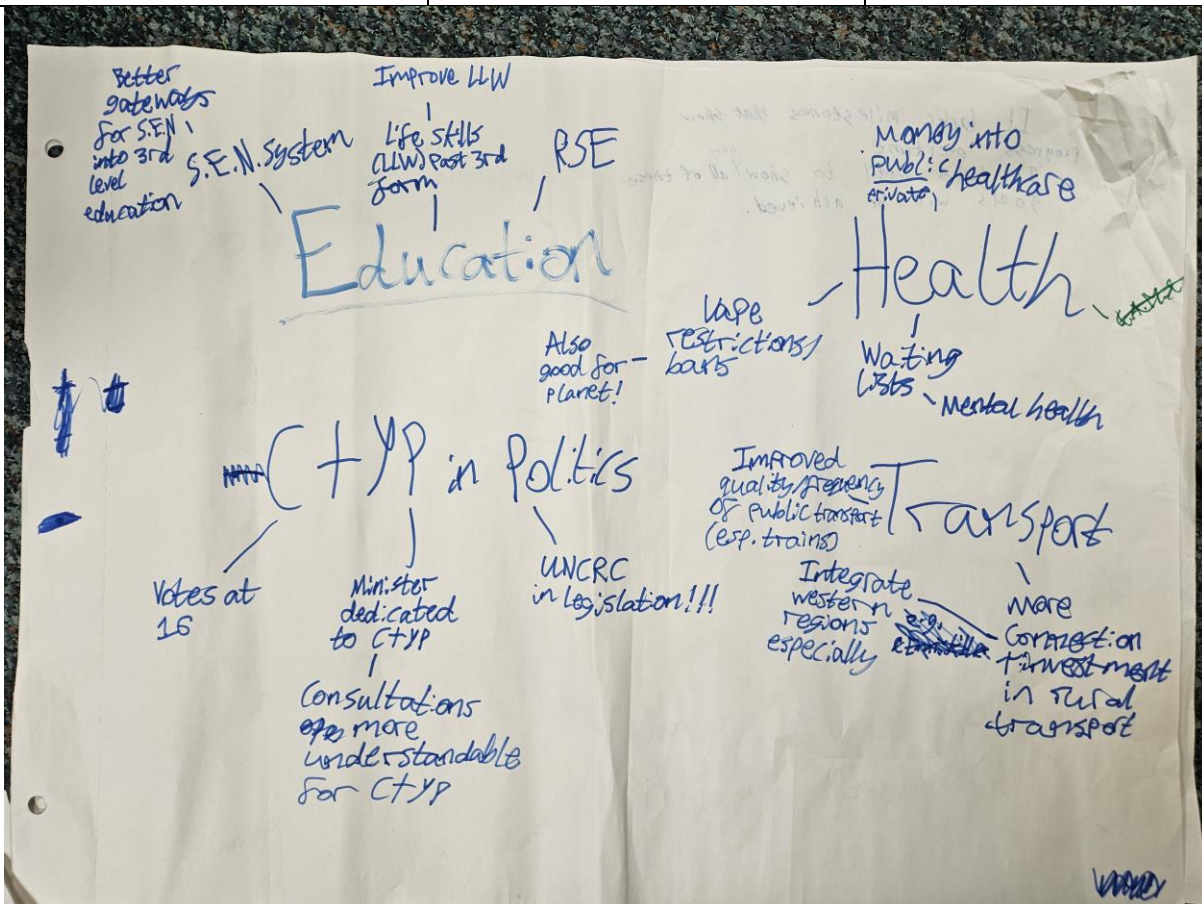 Better
gateways
for S.E.N
into 3rd
level
education
S.E.N. System
Improve LLW
Life skills
(LLW) past 3rd
form
RSE
Education
Money into
public healthcare
(private)
Health
Vape
restrictions/
bans
Also
good for
planet!
Waiting
Lists
Mental health
C+YP in Politics
Votes at
16
Minister
dedicated
to C+YP
Consultations
more
understandable
for C+YP
UNCRC
in Legislation!!!
Improved
quality/frequency
of public transport
(esp. trains)
Transport
Integrate
western
regions
especially
e.g.
More
Connection
+ investment
in rural
transport